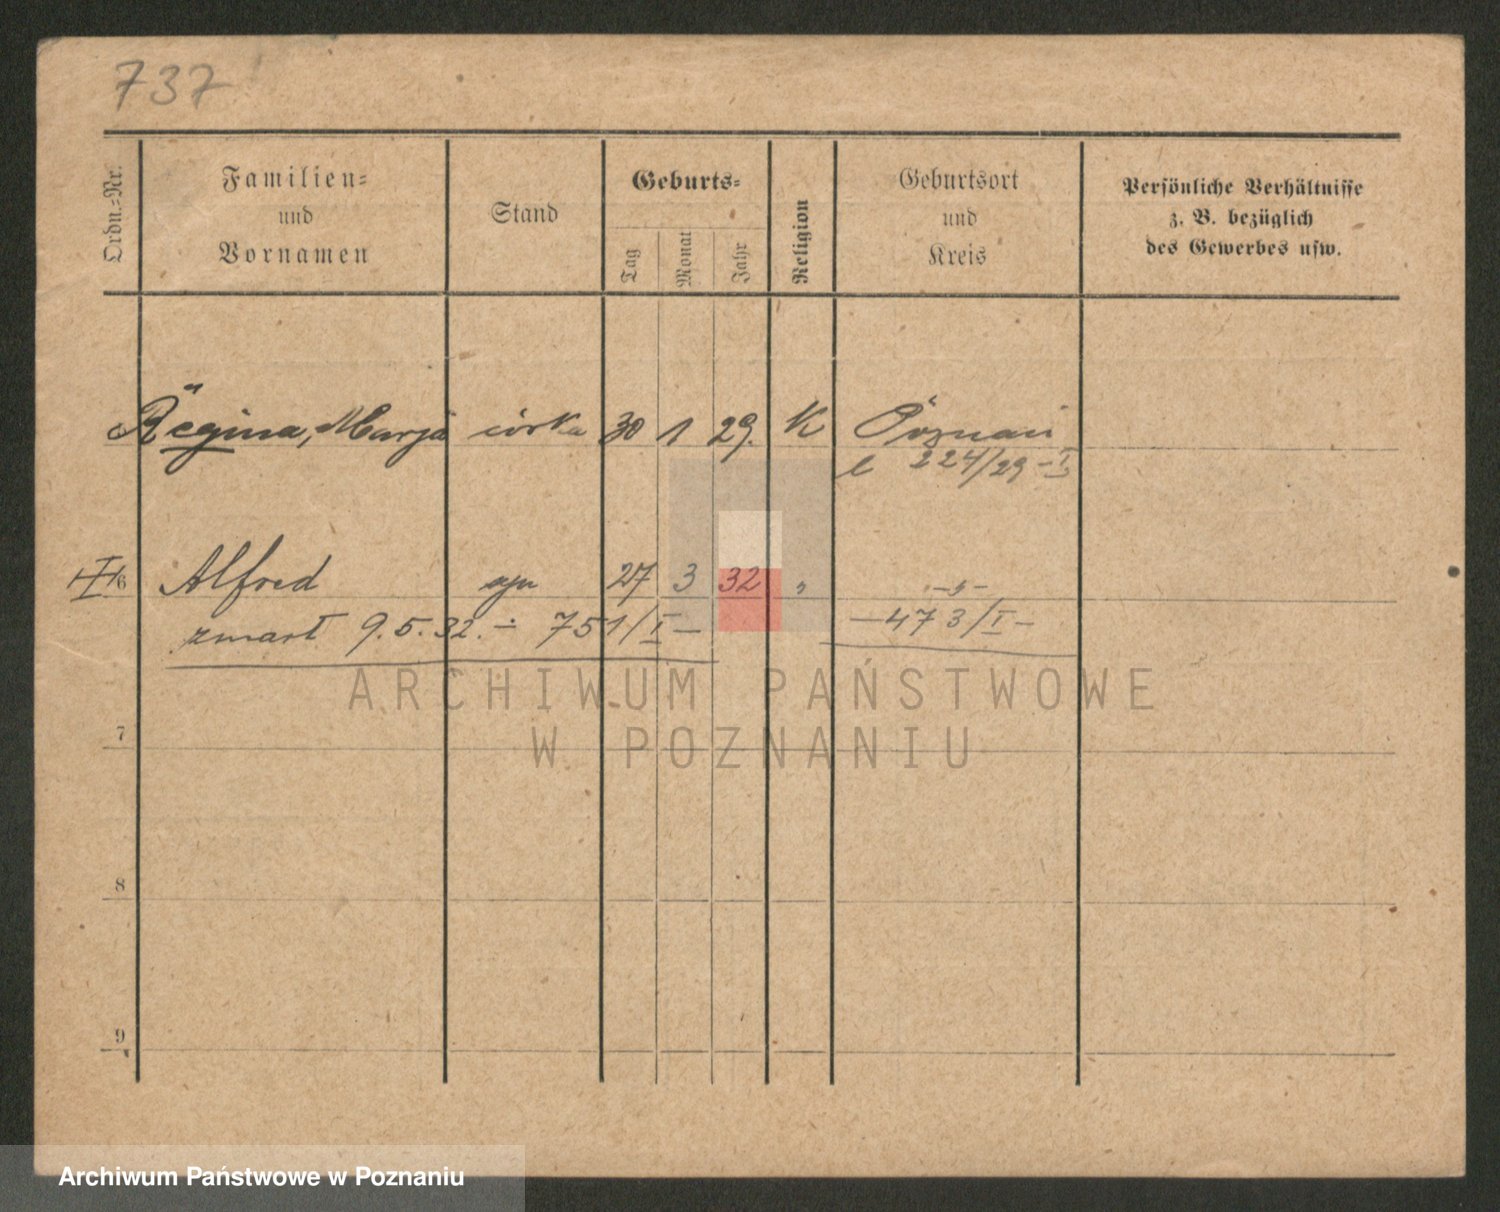 737
Ordn.-Nr.
Familien-
und
Vornamen
Stand
Geburts-
Tag
Monat
Jahr
Religion
Geburtsort
und
Kreis
Persönliche Verhältnisse
z. B. bezüglich
des Gewerbes usw.
Regina, Marja córka 30 1 29. K Poznań
224/29 - I
6 Alfred syn 27 3 32 „ -„-
zmarł 9.5.32. - 751/I - -473/I-
ARCHIWUM PAŃSTWOWE
W POZNANIU
7
8
9
Archiwum Państwowe w Poznaniu